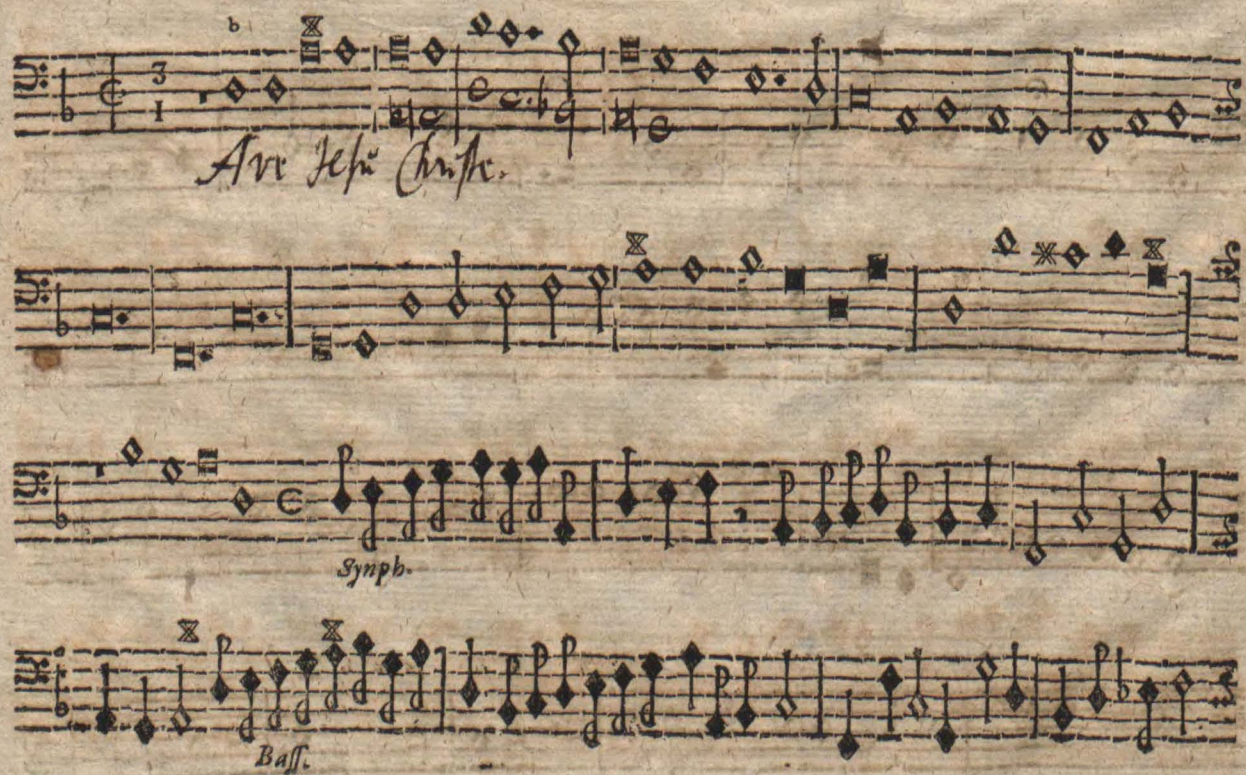 b
3
1
Ave Jesu Christe.
Synph.
Bass.